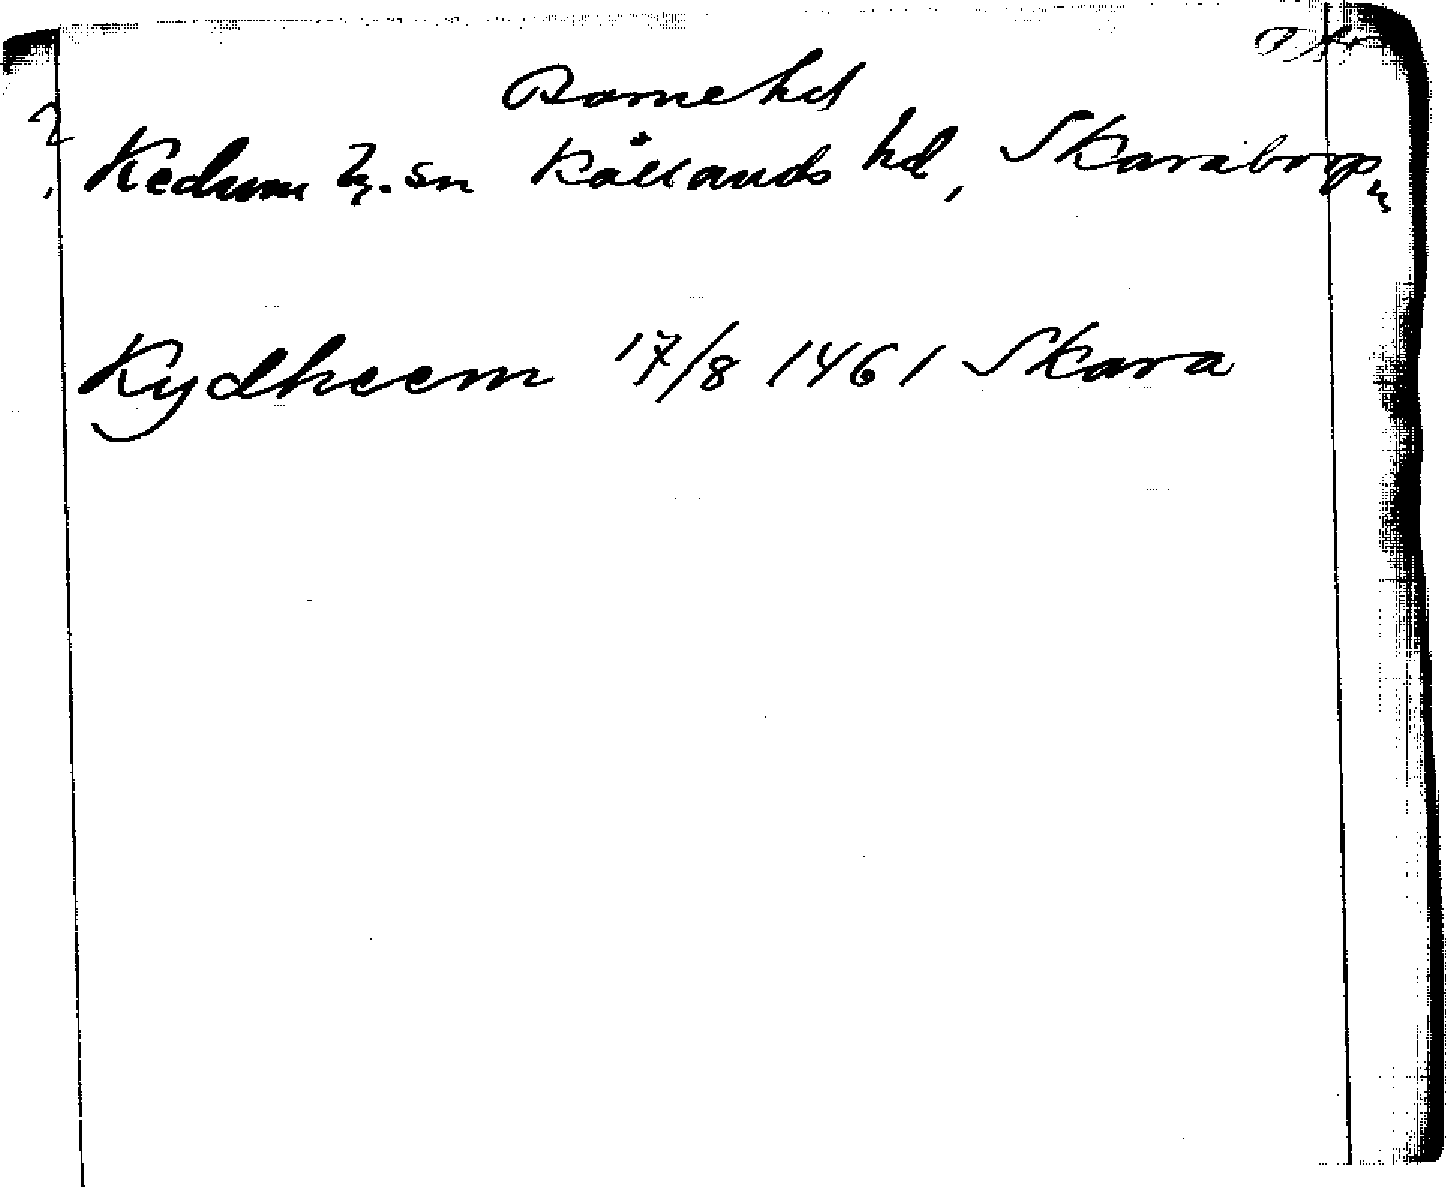 Barne hd
? Kedum z. sn Kållands hd, Skaraborgs
Kydheem 17/8 1461 Skara